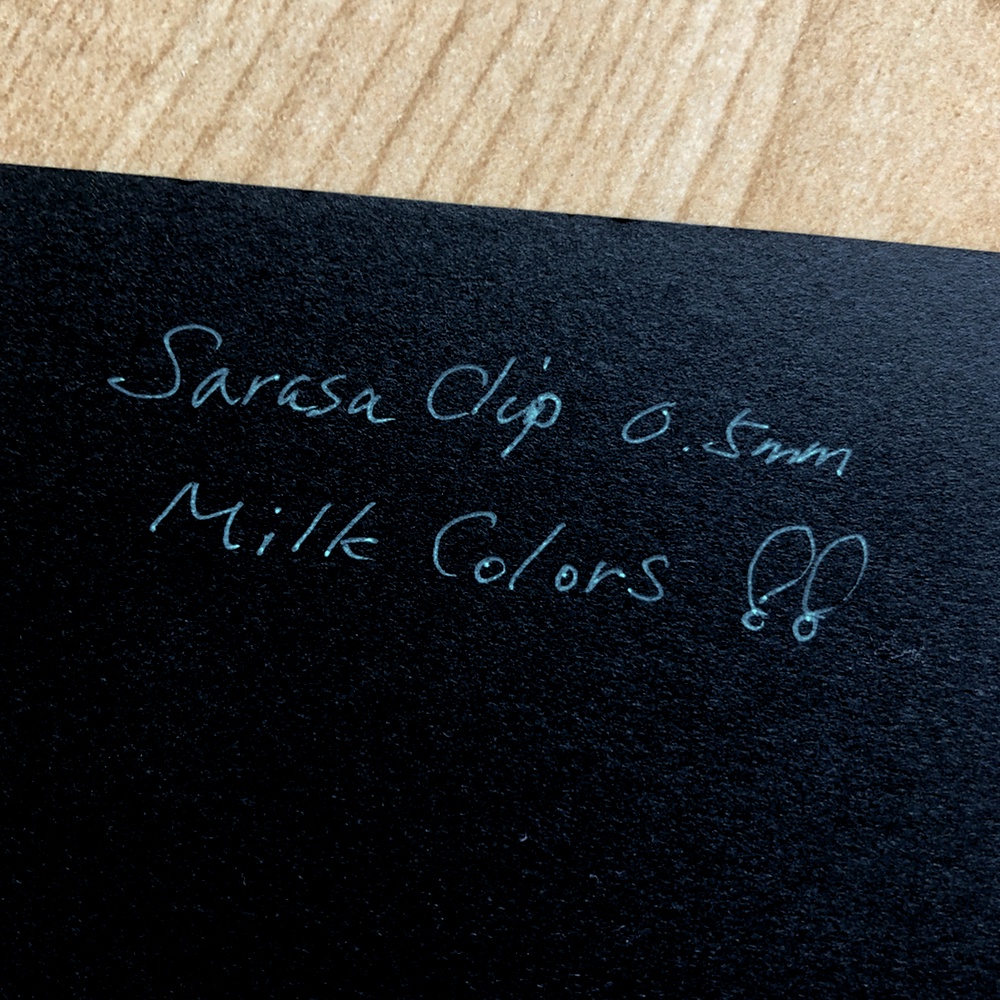 Sarasa Clip 0.5mm
Milk Colors !!